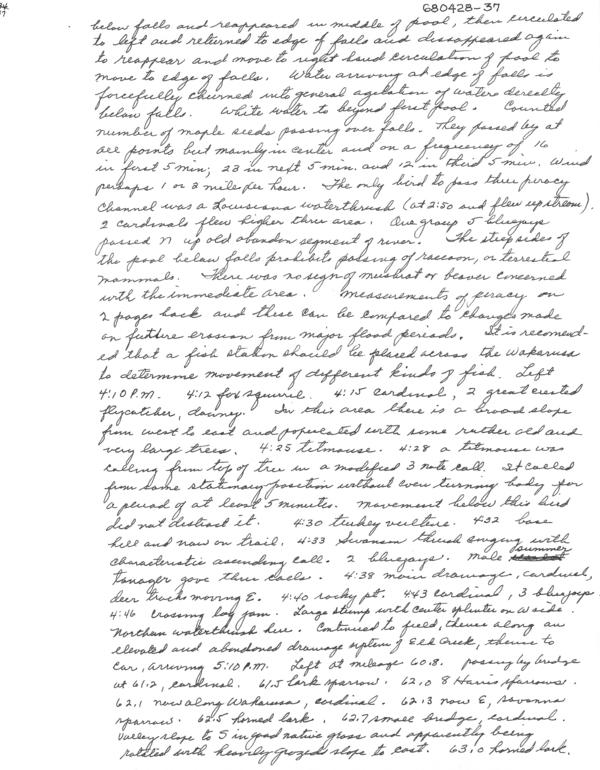 680428-37
below falls and reappeared in middle of pool, then circulated
to left and returned to edge of falls and dissappeared again
to reappear and move to right hand circulation of pool to
move to edge of falls. Water arriving at edge of falls is
forcefully churned into general agitation of waters dereatly
below falls. White water to beyond first pool. Counted
number of maple seeds passing over falls. They passed by at
all points but mainly in center and on a frequency of 16
in first 5 min; 23 in next 5 min. and 12 in third 5 min. Wind
perhaps 1 or 2 mile per hour. The only bird to pass thru piracy
channel was a Louisiana waterthrush (at 2:50 and flew upstream).
2 cardinals flew higher thru area. One group 5 bluejays
passed N up old abandon segment of river. The steep sides of
the pool below falls prohibits passing of raccoon, or terrestial
mammals. There was no sign of muskrat or beaver concerned
with the immediate area. Measurements of piracy on
2 pages back and these can be compared to changes made
on future erosion from major flood periods. It is recomend-
ed that a fish station should be placed across the Wakarusa
to determine movement of different kinds of fish. Left
4:10 P.M. 4:12 fox squirrel. 4:15 cardinal, 2 great crested
flycatcher, downey. In this area there is a broad slope
from west to east and populated with some rather old and
very large trees. 4:25 titmouse. 4:28 a titmouse was
calling from top of tree in a modified 3 note call. It called
from same stationary position without even turning body for
a period of at least 5 minutes. Movement below this bird
did not distract it. 4:30 turkey vulture. 4:32 base
hill and now on trail. 4:33 Swanson thrush singing with
characteristic ascending call. 2 bluejays. Male summer
tanager gave three calls. 4:38 main drainage, cardinal,
deer tracks moving E. 4:40 rocky pt. 4:43 cardinal, 3 bluejays
4:46 crossing log jam. Large stump with center splinter on W side.
Northern waterthrush here. Continued to field, thence along an
elevated and abandoned drainage system of Elk Creek, thence to
car, arriving 5:10 P.M. Left at mileage 60.8. passing by bridge
at 61.2, cardinal. 61.5 lark sparrow. 62.0 8 Harris sparrows.
62.1 now along Wakarusa, cardinal. 62.13 now E, savanna
sparrow. 62.5 horned lark. 62.7 small bridge, cardinal.
Valley slope to S in good native grass and apparently being
rotated with heavily grazed slope to east. 63.0 horned lark.